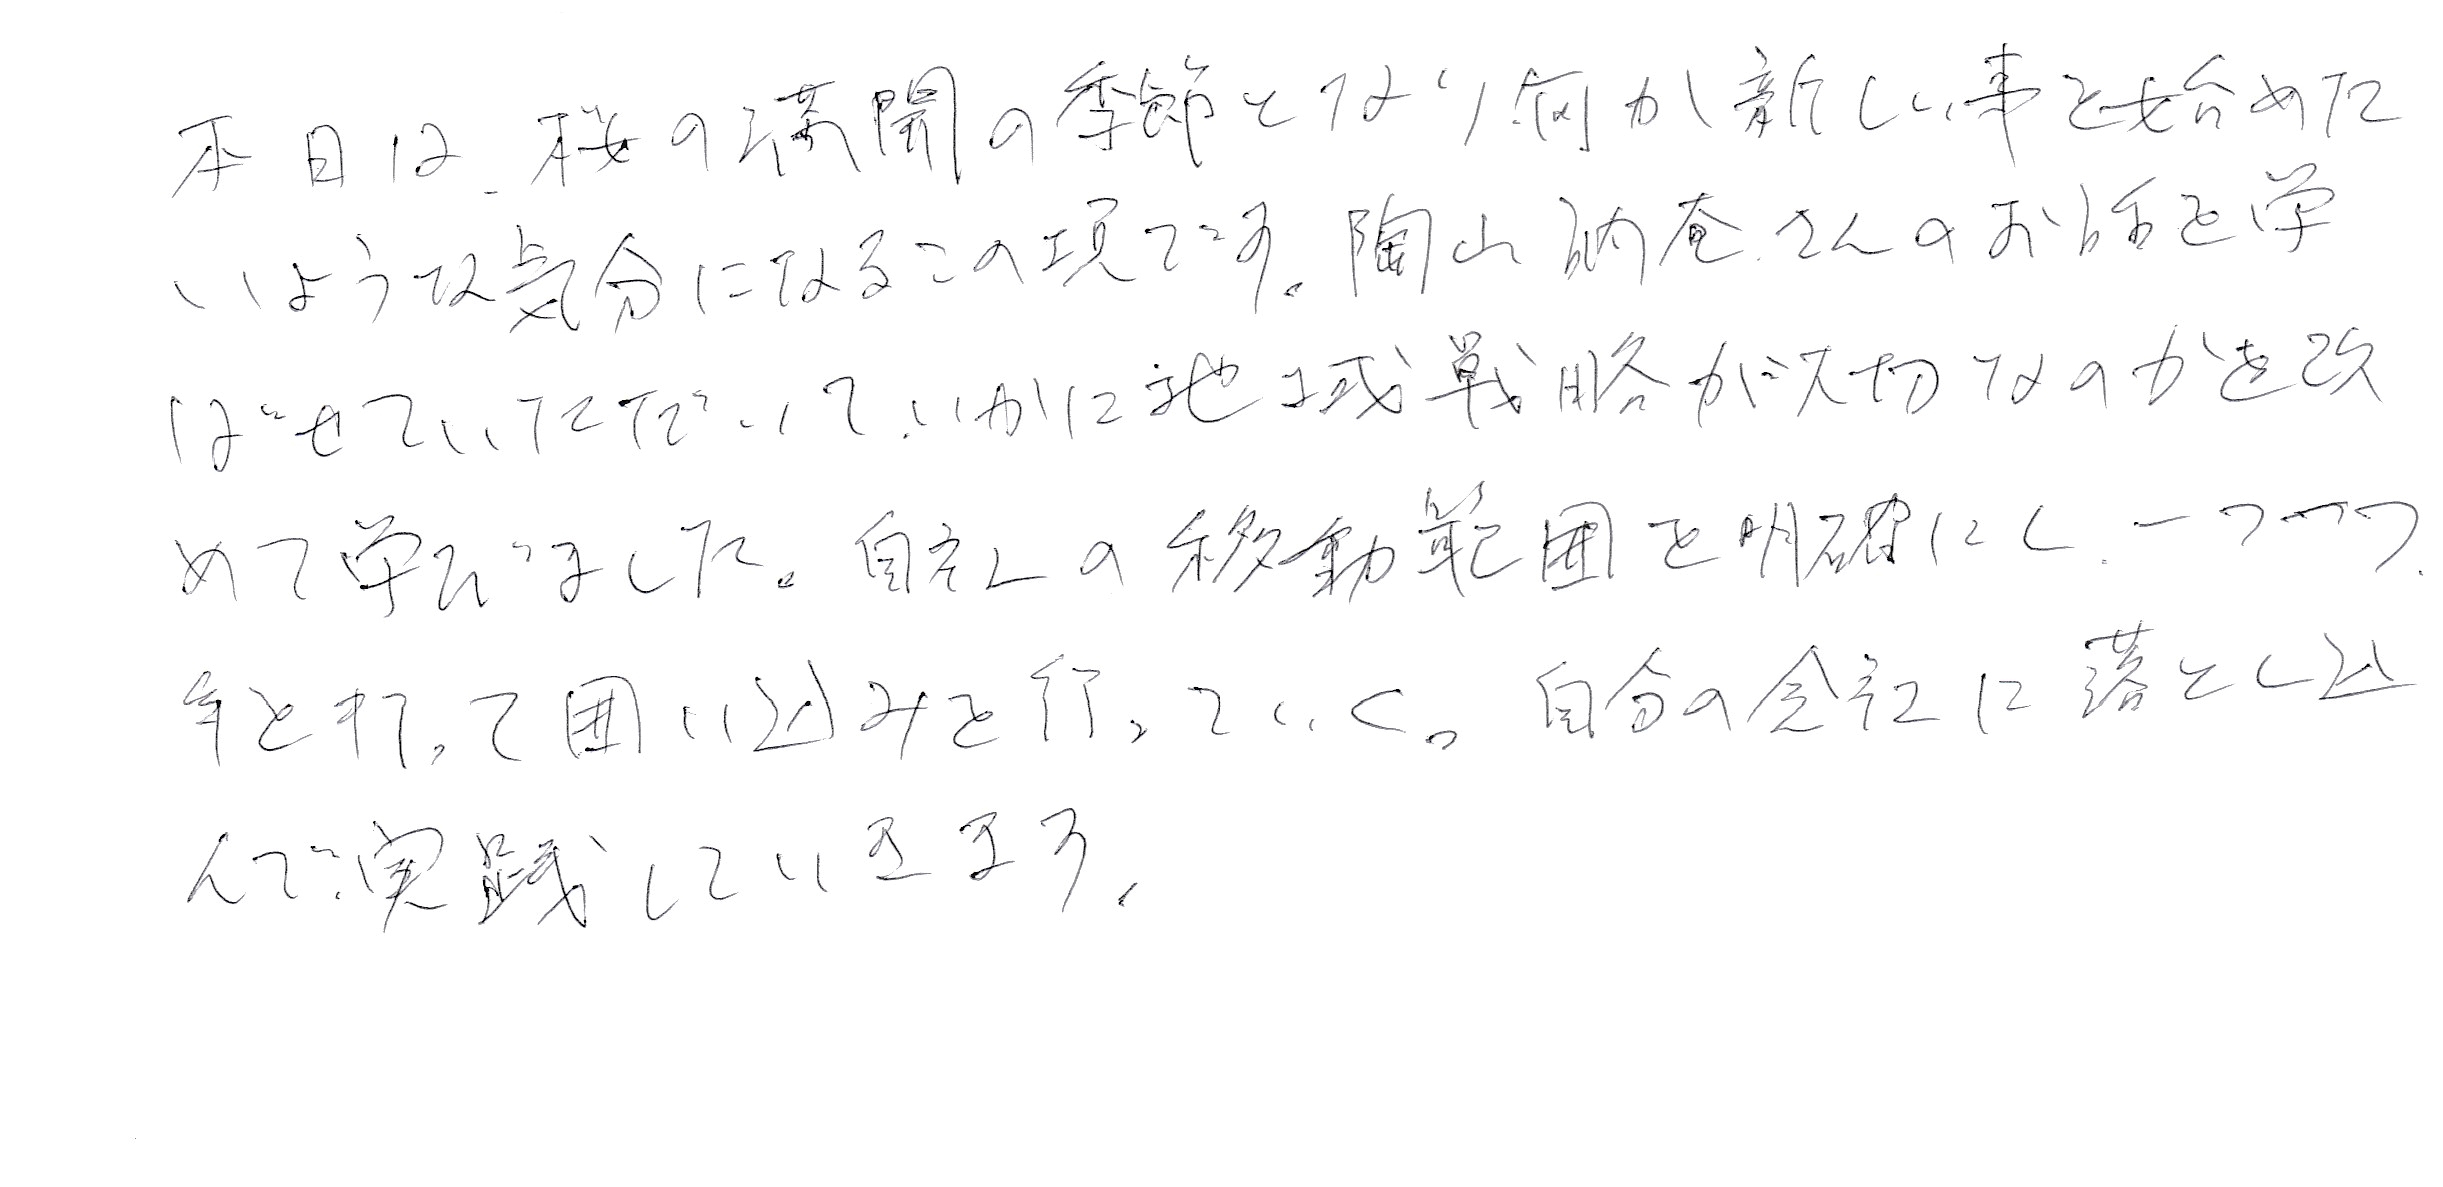 本日は、桜の満開の季節となり何か新しい事を始めた
いような気分になるこの頃です。陶山訥庵さんのお話を学
ばせていただいて、いかに地域戦略が大切なのかを改
めて学びました。自社の移動範囲を明確にし、一つ一つ、
手を打って囲い込みを行っていく。自分の会社に落とし込
んで実践していきます。